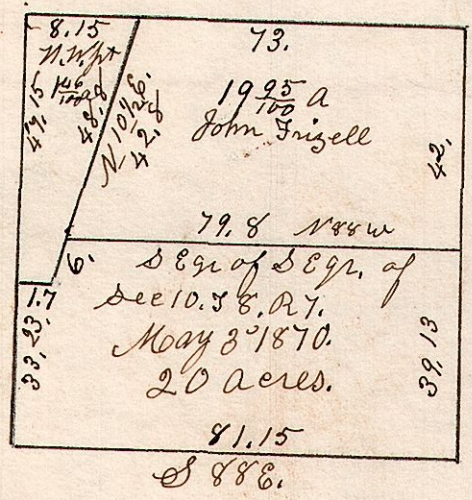 8.15
N.W.pt
1 46/100 a
47.15
48.8
N 10½ E.
42.8
73.
19 95/100 a
John Frizell
42.
79.8 N88W
6.
S Eqr of S Eqr. of
Sec 10. T 8. R 7.
May 3d 1870.
20 acres.
1.7
33.23.
39.13
81.15
S 88 E.